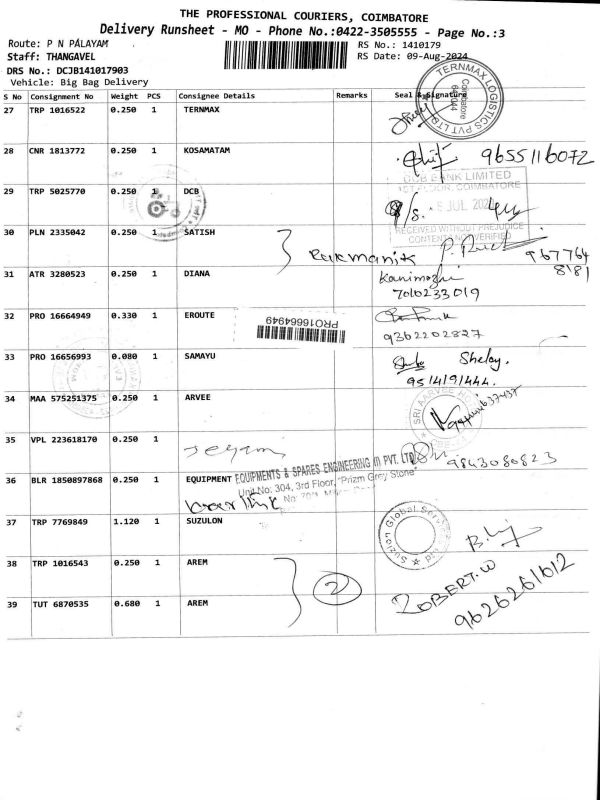 THE PROFESSIONAL COURIERS, COIMBATORE
Delivery Runsheet - MO - Phone No.:0422-3505555 - Page No.:3
Route: P N PALAYAM
RS No.: 1410179
Staff: THANGAVEL
RS Date: 09-Aug-2024
DRS No.: DCJB141017903
Vehicle: Big Bag Delivery
S No Consignment No Weight PCS Consignee Details Remarks Seal & Signature
TERNMAX LOGISTICS PVT LTD
Coimbatore
27 TRP 1016522 0.250 1 TERNMAX
28 CNR 1813772 0.250 1 KOSAMATAM
9655116072
29 TRP 5025770 0.250 1 DCB
DCB BANK LIMITED
COIMBATORE
JUL 202
RECEIVED WITHOUT PREJUDICE
CONTENT NOT VERIFIED
30 PLN 2335042 0.250 1 SATISH
Rukmanik
967764
8181
31 ATR 3280523 0.250 1 DIANA
Kanimozhi
7010233019
32 PRO 16664949 0.330 1 EROUTE
PRO16664949
9362202827
33 PRO 16656993 0.080 1 SAMAYU
Sheloy.
9514191444.
34 MAA 575251375 0.250 1 ARVEE
SRI AARVEE
35 VPL 223618170 0.250 1
Jeyam
9843080823
36 BLR 1850897868 0.250 1 EQUIPMENT
EQUIPMENTS & SPARES ENGINEERING (I) PVT. LTD
Unit No: 304, 3rd Floor, "Prizm Grey Stone"
37 TRP 7769849 1.120 1 SUZULON
Suzlon Global Services Ltd
38 TRP 1016543 0.250 1 AREM
2
ROBERT.W
9626261612
39 TUT 6870535 0.680 1 AREM